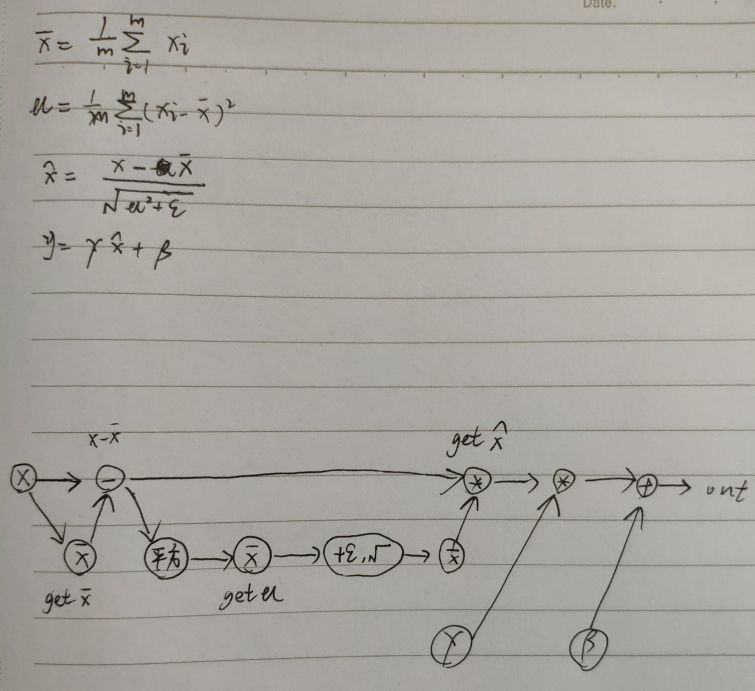 Date.
x̄ = 1/m ∑_{i=1}^{m} xi
u = 1/m ∑_{i=1}^{m} (xi - x̄)²
x̂ = (x - x̄) / √(u² + ε)
y = γ x̂ + β
x - x̄
get x̂
x
-
*
*
+
out
x̄
平方
x̄
+ε, √
1/x
get x̄
get u
γ
β